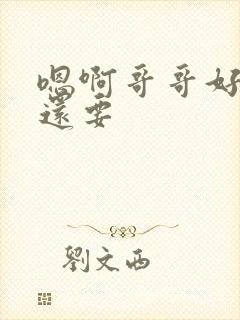 嗯啊哥哥好
還要
劉文西